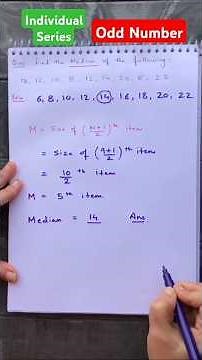 Individual
Series
Odd Number
Que: Find the Median of the following:
Soln. 6, 8, 10, 12, 12, 14, 16, 18, 20, 22
M = Size of (N+1/2)th item
= Size of (9+1/2)th item
= 10/2 th item
M = 5th item
Median = 14 Ans